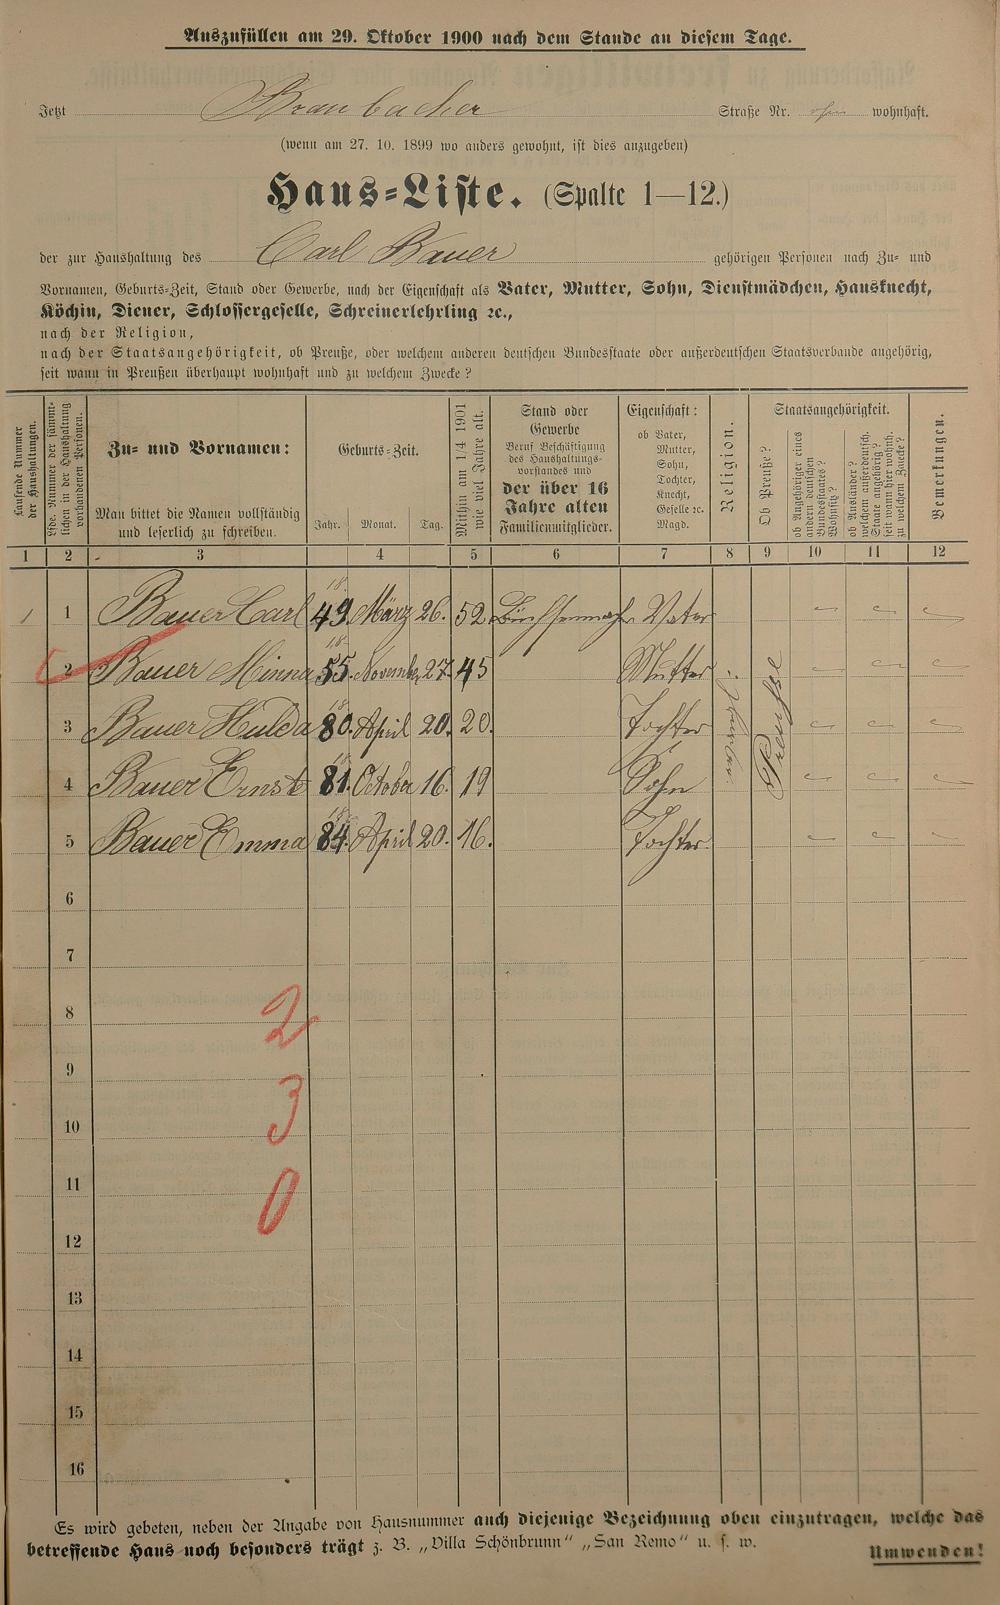 Auszufüllen am 29. Oktober 1900 nach dem Stande an diesem Tage.
Jetzt Braubacher Straße Nr. ohne wohnhaft.
(wenn am 27. 10. 1899 wo anders gewohnt, ist dies anzugeben)
Haus-Liste. (Spalte 1—12.)
der zur Haushaltung des Carl Bauer gehörigen Personen nach Zu- und
Vornamen, Geburts-Zeit, Stand oder Gewerbe, nach der Eigenschaft als Vater, Mutter, Sohn, Dienstmädchen, Hausknecht,
Köchin, Diener, Schlossergeselle, Schreinerlehrling ꝛc.,
nach der Religion,
nach der Staatsangehörigkeit, ob Preuße, oder welchem anderen deutschen Bundesstaate oder außerdeutschen Staatsverbande angehörig,
seit wann in Preußen überhaupt wohnhaft und zu welchem Zwecke?
Laufende Nummer
der Haushaltungen.
Lfde. Nummer der sämmt-
lichen in der Haushaltung
vorhandenen Personen.
Zu- und Vornamen:
Man bittet die Namen vollständig
und leserlich zu schreiben.
Geburts-Zeit.
Jahr. Monat. Tag.
Mithin am 1/4 1901
wie viel Jahre alt.
Stand oder
Gewerbe
Beruf Beschäftigung
des Haushaltungs-
vorstandes und
der über 16
Jahre alten
Familienmitglieder.
Eigenschaft:
ob Vater,
Mutter,
Sohn,
Tochter,
Knecht,
Geselle ꝛc.
Magd.
Religion.
Staatsangehörigkeit.
Ob Preuße?
ob Angehöriger eines
andern deutschen
Bundesstaates?
Wohnsitz?
ob Ausländer?
welchem außerdeutsch.
Staate angehörig?
seit wann hier wohnh.
zu welchem Zwecke?
Bemerkungen.
1 2 3 4 5 6 7 8 9 10 11 12
1 1 Bauer Carl 18 49. März 26. 52 Büchsenmacher Vater
2 Bauer Minna 18 55. November 27. 45 Mutter
3 Bauer Hulda 18 80. April 20. 20. Tochter
4 Bauer Ernst 18 81. October 16. 19 Sohn
5 Bauer Emma 18 84. April 20. 16. Tochter
Preusse
6
7
8
2
9
10
3
11
0
12
13
14
15
16
Es wird gebeten, neben der Angabe von Hausnummer auch diejenige Bezeichnung oben einzutragen, welche das
betreffende Haus noch besonders trägt z. B. „Villa Schönbrunn“ „San Remo“ u. s. w.
Umwenden!